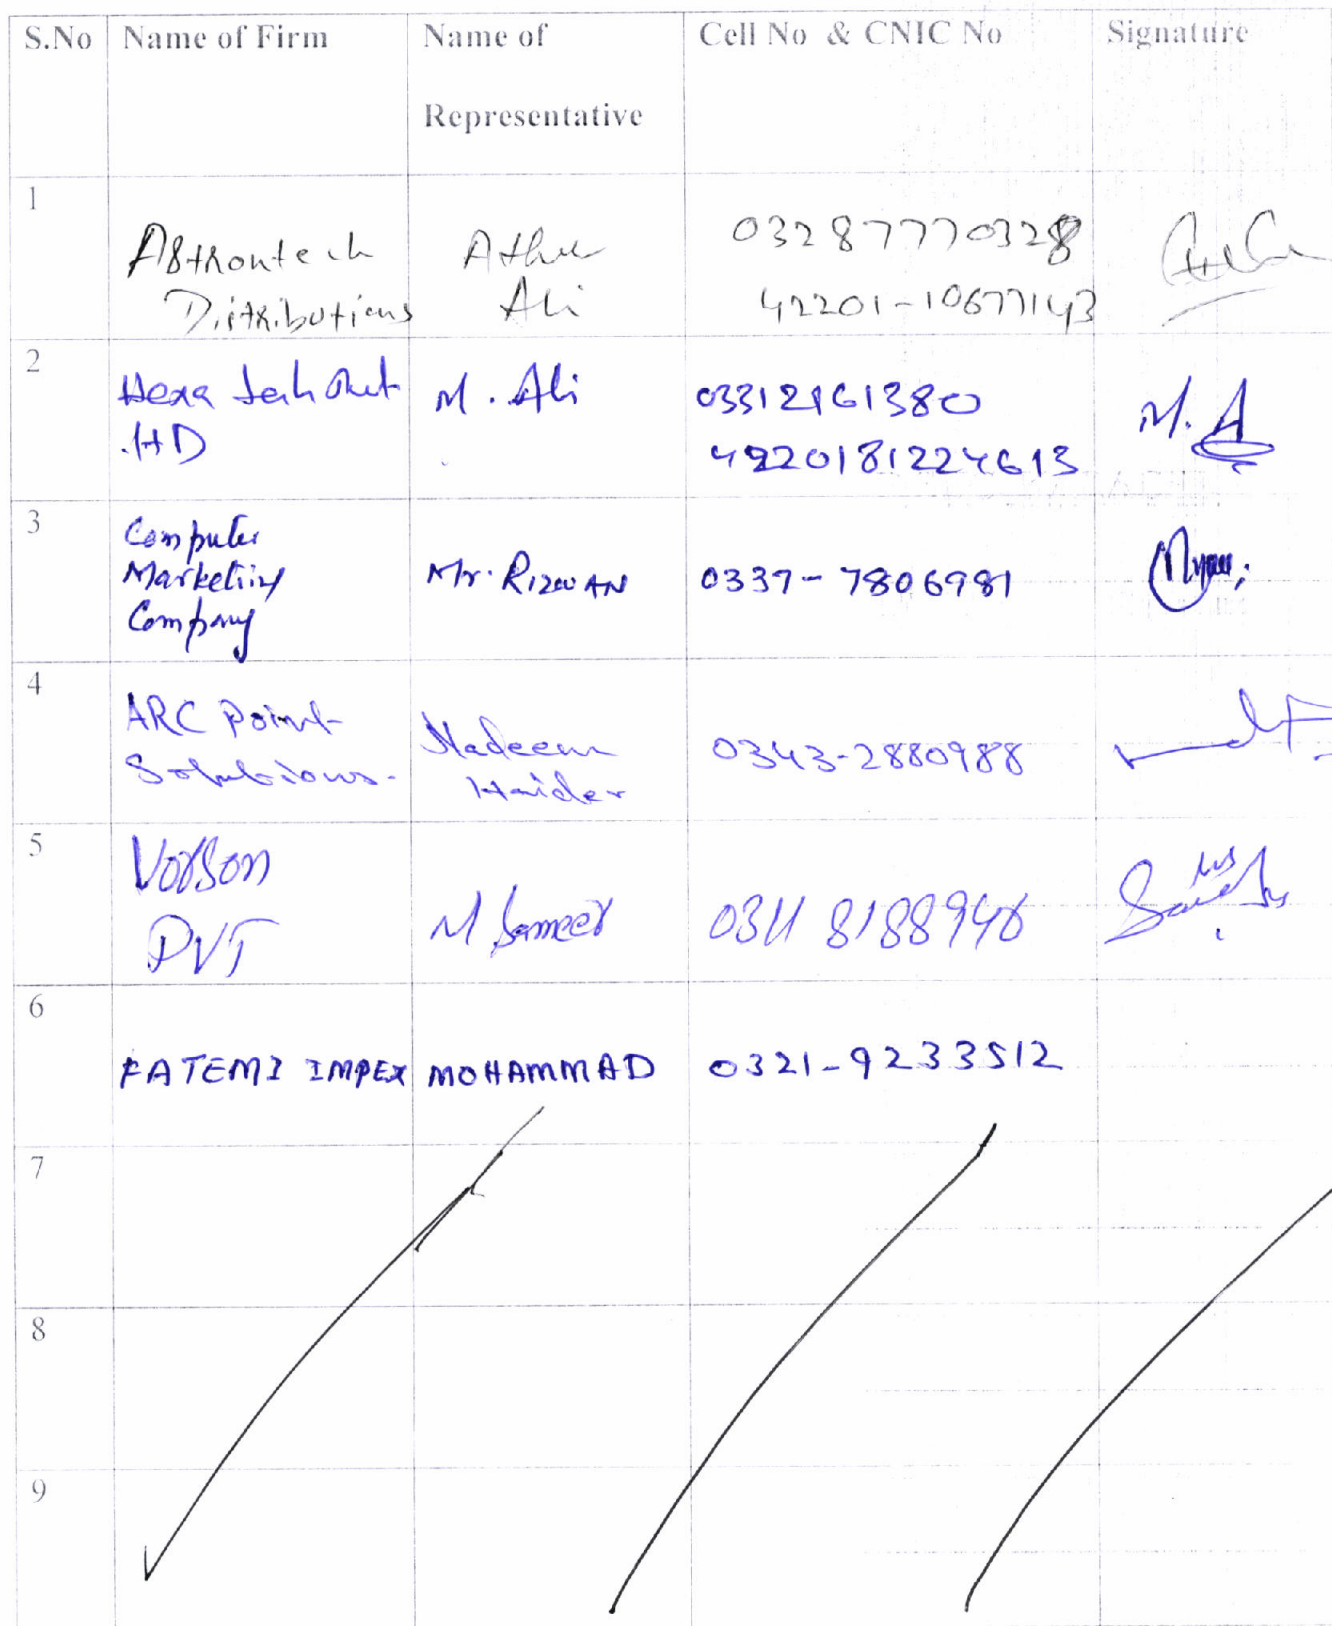 S.No Name of Firm Name of Representative Cell No & CNIC No Signature
1 Asthrontech Distributions Ather Ali 03287770328 42201-10677143
2 Hexa .HD M. Ali 03312161380 4220181224613 M. A
3 Computer Marketing Company Mr. RIZWAN 0337-7806981
4 ARC Point Solutions. Nadeem Haider 0343-2880988
5 Vorson PVT M Sameer 0311 8188946
6 FATEMI IMPEX MOHAMMAD 0321-9233512
7
8
9